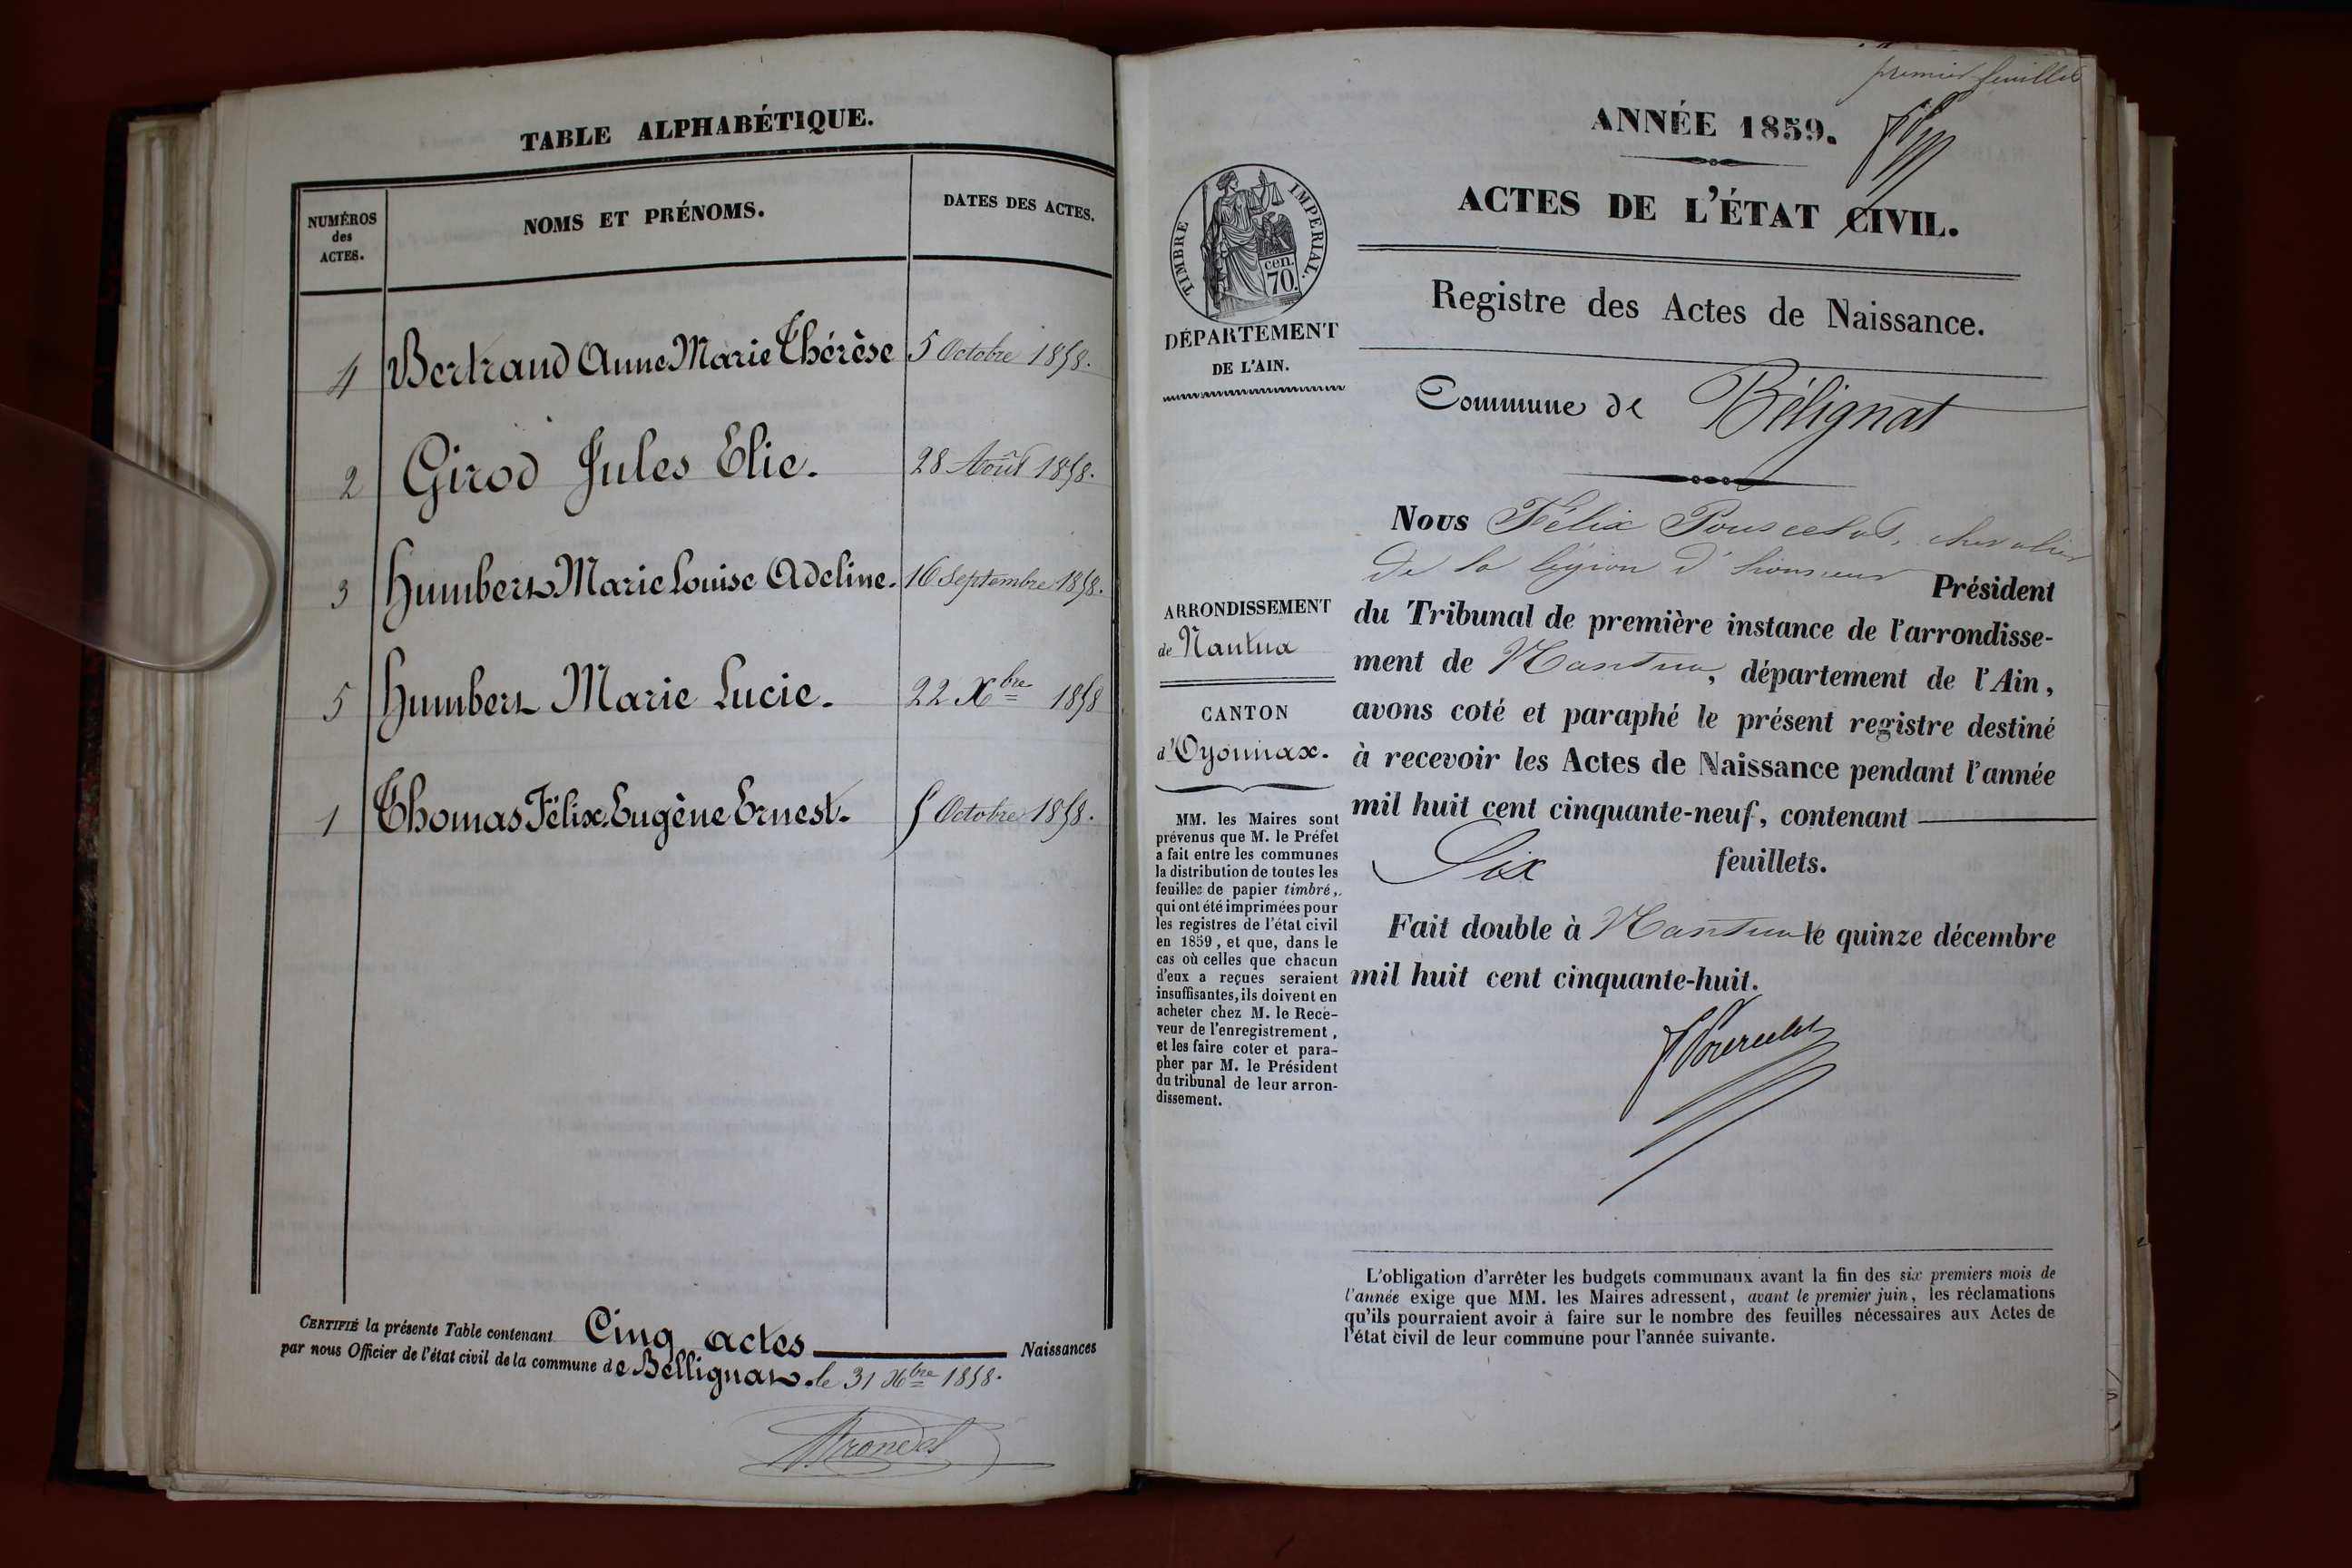 TABLE ALPHABÉTIQUE.
NUMÉROS
des
ACTES.
NOMS ET PRÉNOMS.
DATES DES ACTES.
4 Bertrand Anne Marie Thérèse 5 Octobre 1858.
2 Girod Jules Elie. 28 Août 1858.
3 Humbert Marie Louise Adeline. 16 Septembre 1858.
5 Humbert Marie Lucie. 22 Xbre 1858
1 Thomas Félix Eugène Ernest. 5 Octobre 1858.
CERTIFIÉ la présente Table contenant Cinq actes Naissances
par nous Officier de l'état civil de la commune de Bellignat le 31 Xbre 1858.
premier feuillet
ANNÉE 1859.
ACTES DE L'ÉTAT CIVIL.
TIMBRE IMPERIAL.
cen.
70.
DÉPARTEMENT
DE L'AIN.
Registre des Actes de Naissance.
Commune de Bélignat
Nous Félix Pouscelat, chevalier
de la légion d'honneur Président
du Tribunal de première instance de l'arrondisse-
ment de Nantua, département de l'Ain,
avons coté et paraphé le présent registre destiné
à recevoir les Actes de Naissance pendant l'année
mil huit cent cinquante-neuf, contenant
Six feuillets.
Fait double à Nantua le quinze décembre
mil huit cent cinquante-huit.
ARRONDISSEMENT
de Nantua
CANTON
d'Oyonnax.
MM. les Maires sont
prévenus que M. le Préfet
a fait entre les communes
la distribution de toutes les
feuilles de papier timbré,
qui ont été imprimées pour
les registres de l'état civil
en 1859, et que, dans le
cas où celles que chacun
d'eux a reçues seraient
insuffisantes, ils doivent en
acheter chez M. le Rece-
veur de l'enregistrement,
et les faire coter et para-
pher par M. le Président
du tribunal de leur arron-
dissement.
L'obligation d'arrêter les budgets communaux avant la fin des six premiers mois de
l'année exige que MM. les Maires adressent, avant le premier juin, les réclamations
qu'ils pourraient avoir à faire sur le nombre des feuilles nécessaires aux Actes de
l'état civil de leur commune pour l'année suivante.